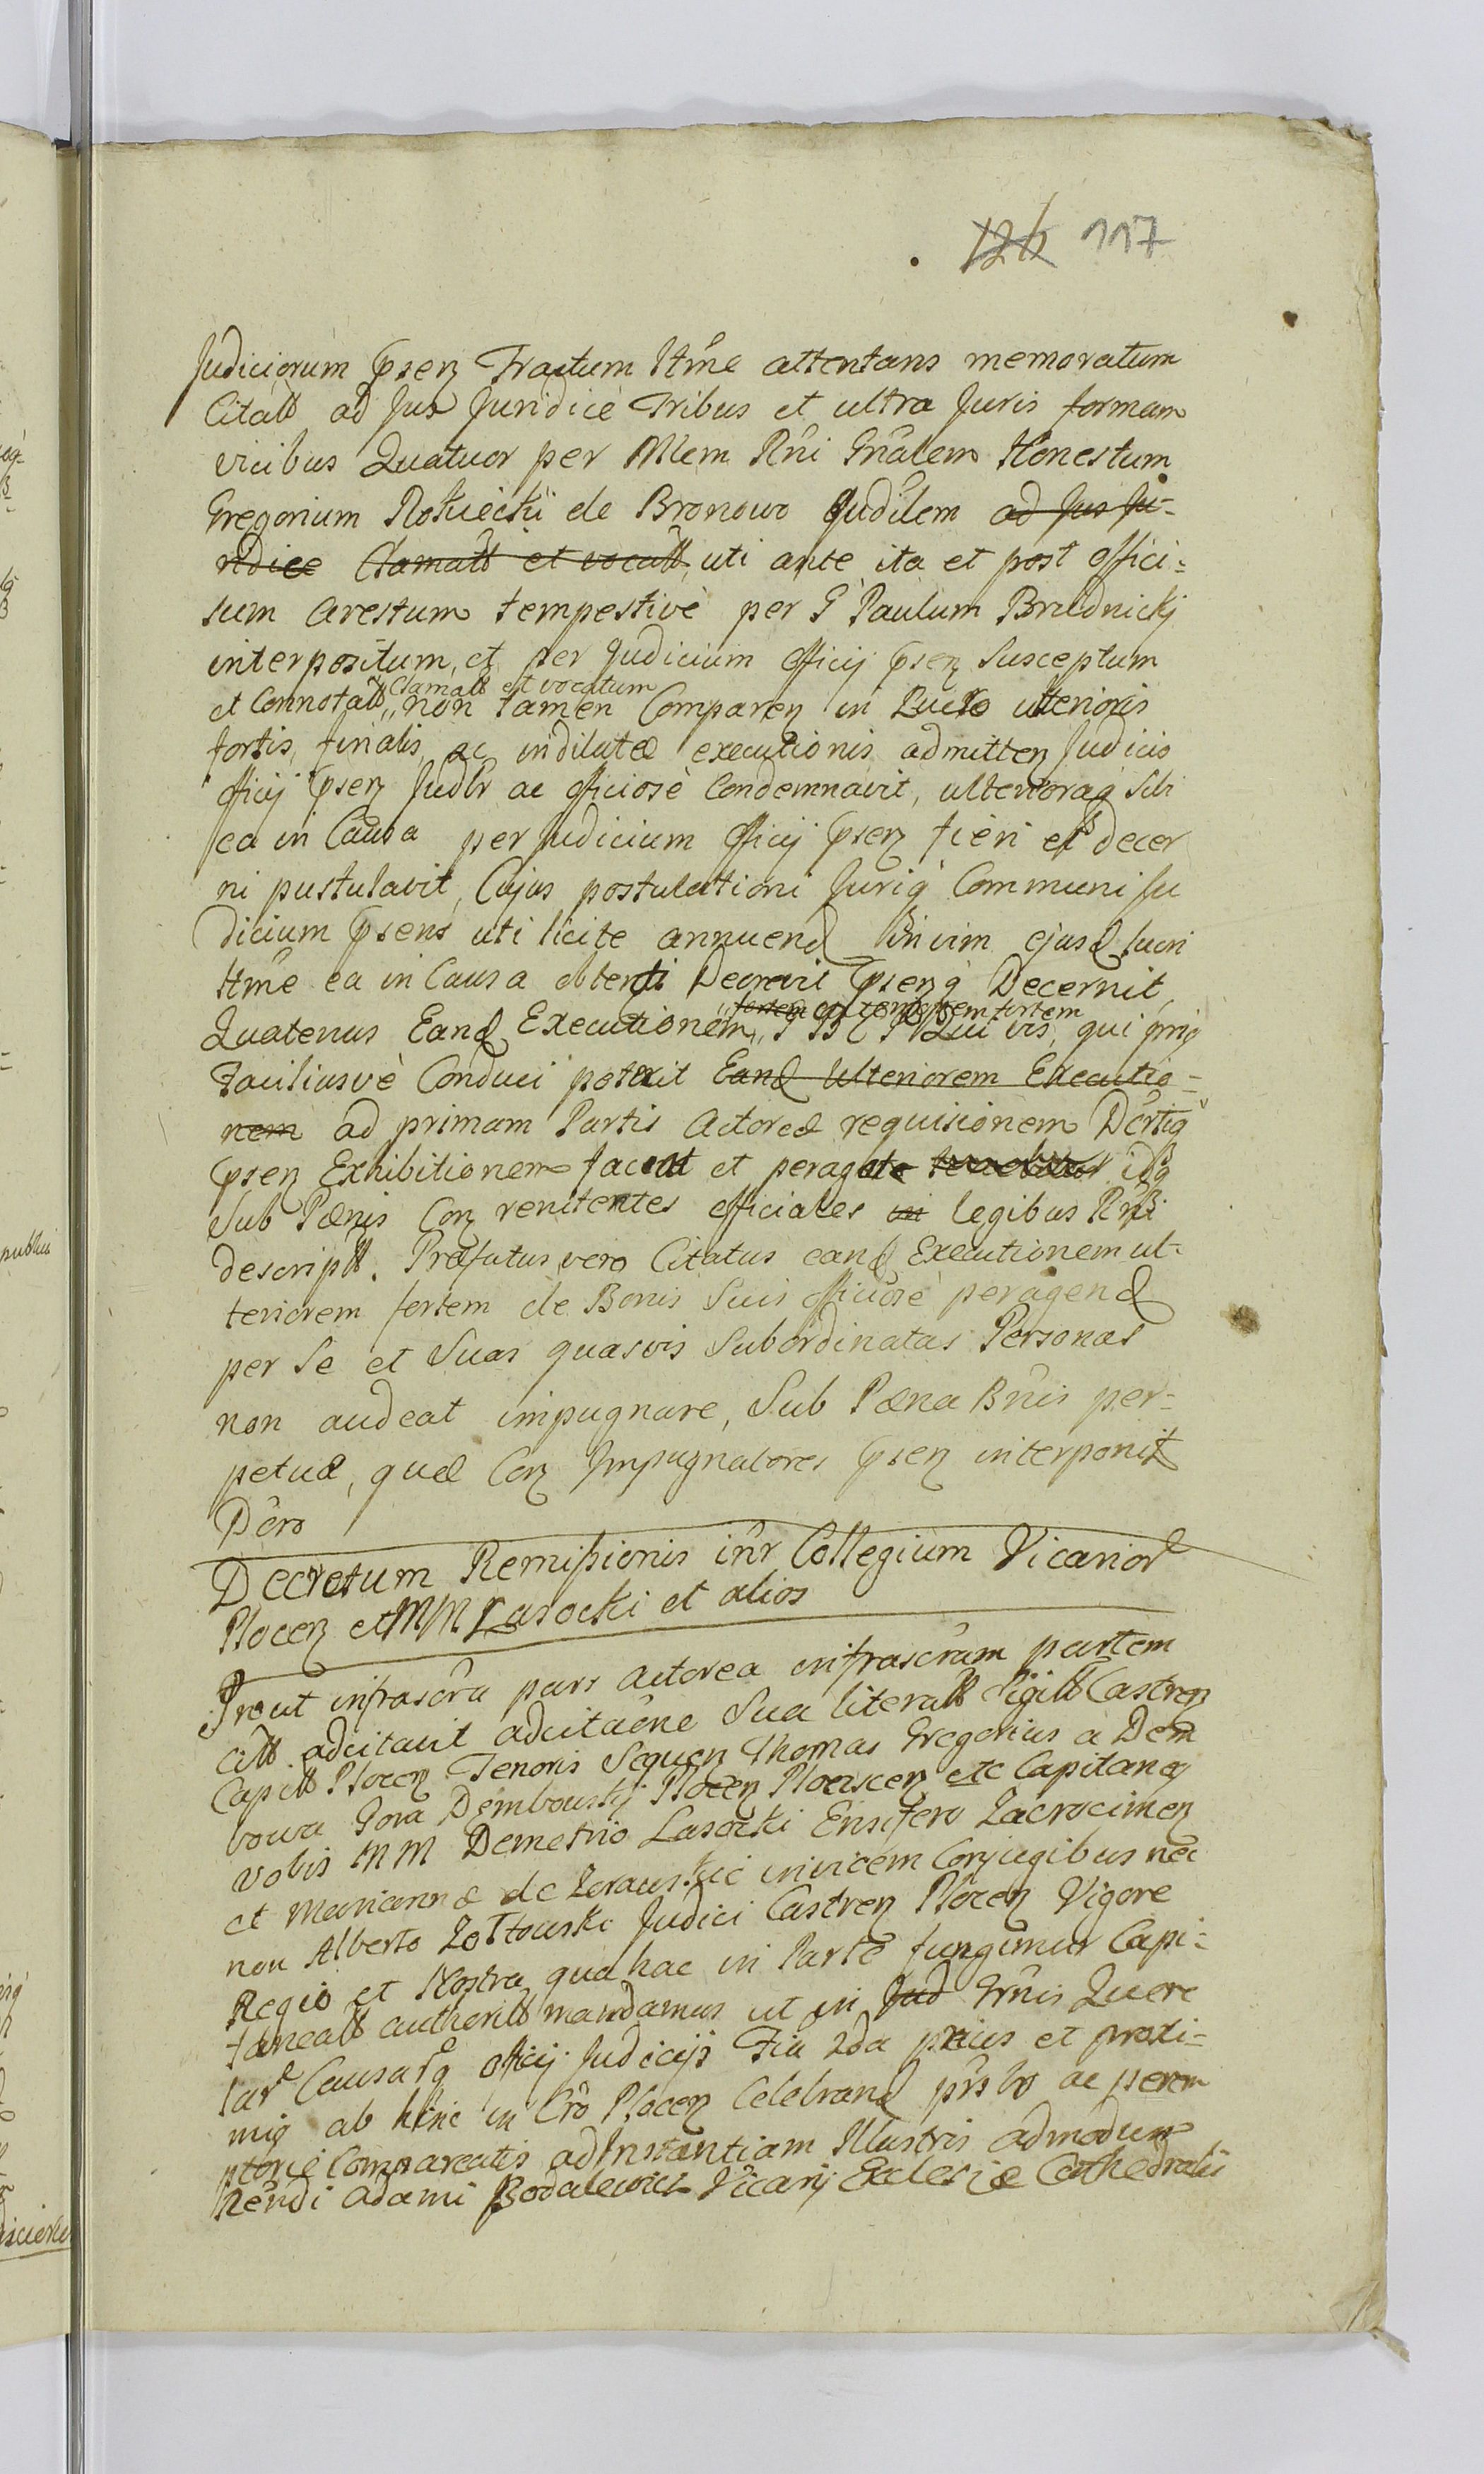 126 117
Judiciorum pñsen Tractum Ittme attentans memoratum
Citatt ad Jus Juridicè Tribus et ultra Juris formam
vicibus Quatuor per Mlem Rñi Gñalem Honestum
Gregorium Rokiecki de Bronowo Judilem ad Jus Ju-
ridice Clamatt et vocatt, uti ante ita et post offici-
sum Arestum tempestivè per G Paulum Brudnickj
interpositum, et per Judicium Officij pñsen Susceptum
et Connotatt,, Clamatt et vocatum non tamen Comparen in Lucro ulterioris
fortis, finalis, ac indilatæ executionis admitten Judicio
Officij pñsen Judlr ac officiosè Condemnavit, ulterioraq Sibi
ea in Causa per Judicium Officij pñsen fieri et decer
ni pustulavit, Cujus postulationi Jurig Communi Ju
dicium pñsens uti licite annuend in vim ejusd lucri
Ittme ea in Causa obtenti Decrevit pñsenq Decernit,
Quatenus Eand Executionem,, fortem Qui vis, qui prig
Faciliusvè Conduci poterit Eand Ulteriorem Executio-
nem ad primam Partis Actoreæ requisionem Dertiq
pñsen Exhibitionem faciat et peragat idq
Sub Pænis Con renitentes officiales in legibus Rñi
descriptt. Præfatus vero Citatus eand Executionem ul-
teriorem fortem de Bonis Suis officiosè peragend
per Se et Suas quasvis Subordinatas Personas
non audeat impugnare, Sub Pæna Bñis per-
petuæ, quæ Con Impugnatores pñsen interponit
Dcro
Decretum Remissionis inr Collegium Vicarior
Plocen et MM Lasocki et alios
Prout infrascra pars Actorea infrascram partem
citt adcitavit adcitaone Sua literatt Sigill Castren
Capitt Plocen Tenoris Sequen Thomas Gregorius a Dem
bowa Gora Dembowskj Plocen Plocscen etc Capitang
vobis MM Demetrio Lasocki Ensifero Zacrocimen
et Mariannæ de Zerauskie invicem Conjugibus nec
non Alberto Zołtowski Judici Castren Plocen Vigore
Regio et Nostra qua hac in Parte fungimur Capi-
taneatt autheritt mandamus ut in Jud Trnis Quere
lar Causarq Officij Judicijs Fia 2da prius et proxi-
mig ab hinc in Cro Plocen Celebrand prslo ac perem
ptorie Compareatis ad Instantiam Illustris admodum
Rendi Adami Bodalewicz Vicarij Ecclesiæ Cathedralis